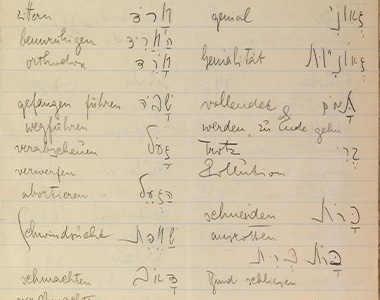 zittern חרד
beunruhigen החריד
orthodox חרד
gefangen führen שבה
wegführen
verabscheuen געל
verwerfen
abortieren הגעל
Schwindsucht שחפת
schmachten דאב
genial גאוני
Genialität גאוניות
vollendet תמם
werden, zu Ende gehn
Trotz קרי
Pollution
schneiden כרת
ausrotten
כרת ברית
Bund schliessen